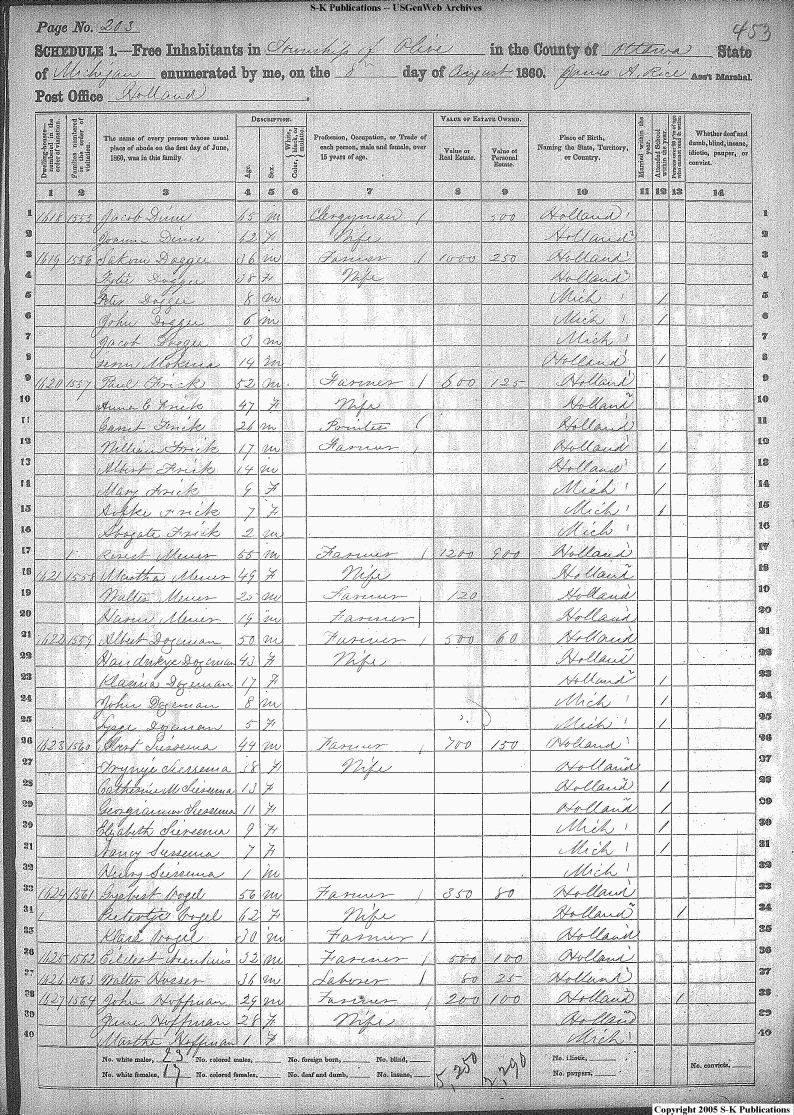 S-K Publications -- USGenWeb Archives
Page No. 203
453
SCHEDULE 1.—Free Inhabitants in Township of Olive in the County of Ottawa State
of Michigan enumerated by me, on the 8th day of August 1860. James A. Rice Ass't Marshal.
Post Office Holland.
Dwelling-houses—numbered in the order of visitation.
Families numbered in the order of visitation.
The name of every person whose usual place of abode on the first day of June, 1860, was in this family.
DESCRIPTION.
Age. Sex. Color, White, black, or mulatto.
Profession, Occupation, or Trade of each person, male and female, over 15 years of age.
VALUE OF ESTATE OWNED.
Value of Real Estate. Value of Personal Estate.
Place of Birth, Naming the State, Territory, or Country.
Married within the year. Attended School within the year. Persons over 20 y'rs of age who cannot read & write.
Whether deaf and dumb, blind, insane, idiotic, pauper, or convict.
1 2 3 4 5 6 7 8 9 10 11 12 13 14
1 1618 1555 Jacob 65 m Clergyman / 500 Holland 1
2 62 F Wife Holland 2
3 1619 1556 Dogger 36 m Farmer / 1000 250 Holland 3
4 Dogger 38 F Wife Holland 4
5 Dogger 8 m Mich / 5
6 John Dogger 6 m Mich / 6
7 Jacob Dogger m Mich 7
8 14 m Holland / 8
9 1620 1557 Paul Frick 52 m Farmer / 600 125 Holland 9
10 Anna C Frick 47 F Wife Holland 10
11 Frick 26 m Holland 11
12 William Frick 17 m Farmer Holland / 12
13 Albert Frick 14 m Holland / 13
14 Mary Frick 9 F Mich / 14
15 Frick 7 F Mich / 15
16 Frick 2 m Mich 16
17 55 m Farmer / 1200 900 Holland 17
18 1621 1558 Martha 49 F Wife Holland 18
19 Walter 25 m Farmer 120 Holland 19
20 19 m Farmer Holland 20
21 1622 1559 Albert Dozeman 50 m Farmer / 500 60 Holland 21
22 Dozeman 43 F Wife Holland 22
23 Klasina Dozeman 17 F Holland / 23
24 John Dozeman 8 m Mich / 24
25 Dozeman 5 F Mich / 25
26 1623 1560 Siersema 49 m Farmer / 700 150 Holland 26
27 Siersema 38 F Wife Holland 27
28 Catherine M Siersema 13 F Holland / 28
29 Siersema 11 F Holland / 29
30 Elizabeth Siersema 9 F Mich / 30
31 Nancy Siersema 7 F Mich / 31
32 Henry Siersema 1 m Mich 32
33 1624 1561 Vogel 56 m Farmer / 350 80 Holland 33
34 Vogel 62 F Wife Holland / 34
35 Klaas Vogel 30 m Farmer / Holland 35
36 1625 1562 32 m Farmer / 500 100 Holland 36
37 1626 1563 Walter 36 m Laborer / 80 25 Holland 37
38 1627 1564 John Hoffman 29 m Farmer / 200 100 Holland / 38
39 Jane Hoffman 28 F Wife Holland 39
40 Martha Hoffman 1 F Mich 40
No. white males, 23 No. colored males, No. foreign born, No. blind, 5,250 2,290 No. idiotic, No. convicts,
No. white females, 17 No. colored females, No. deaf and dumb, No. insane, No. paupers,
Copyright 2005 S-K Publications